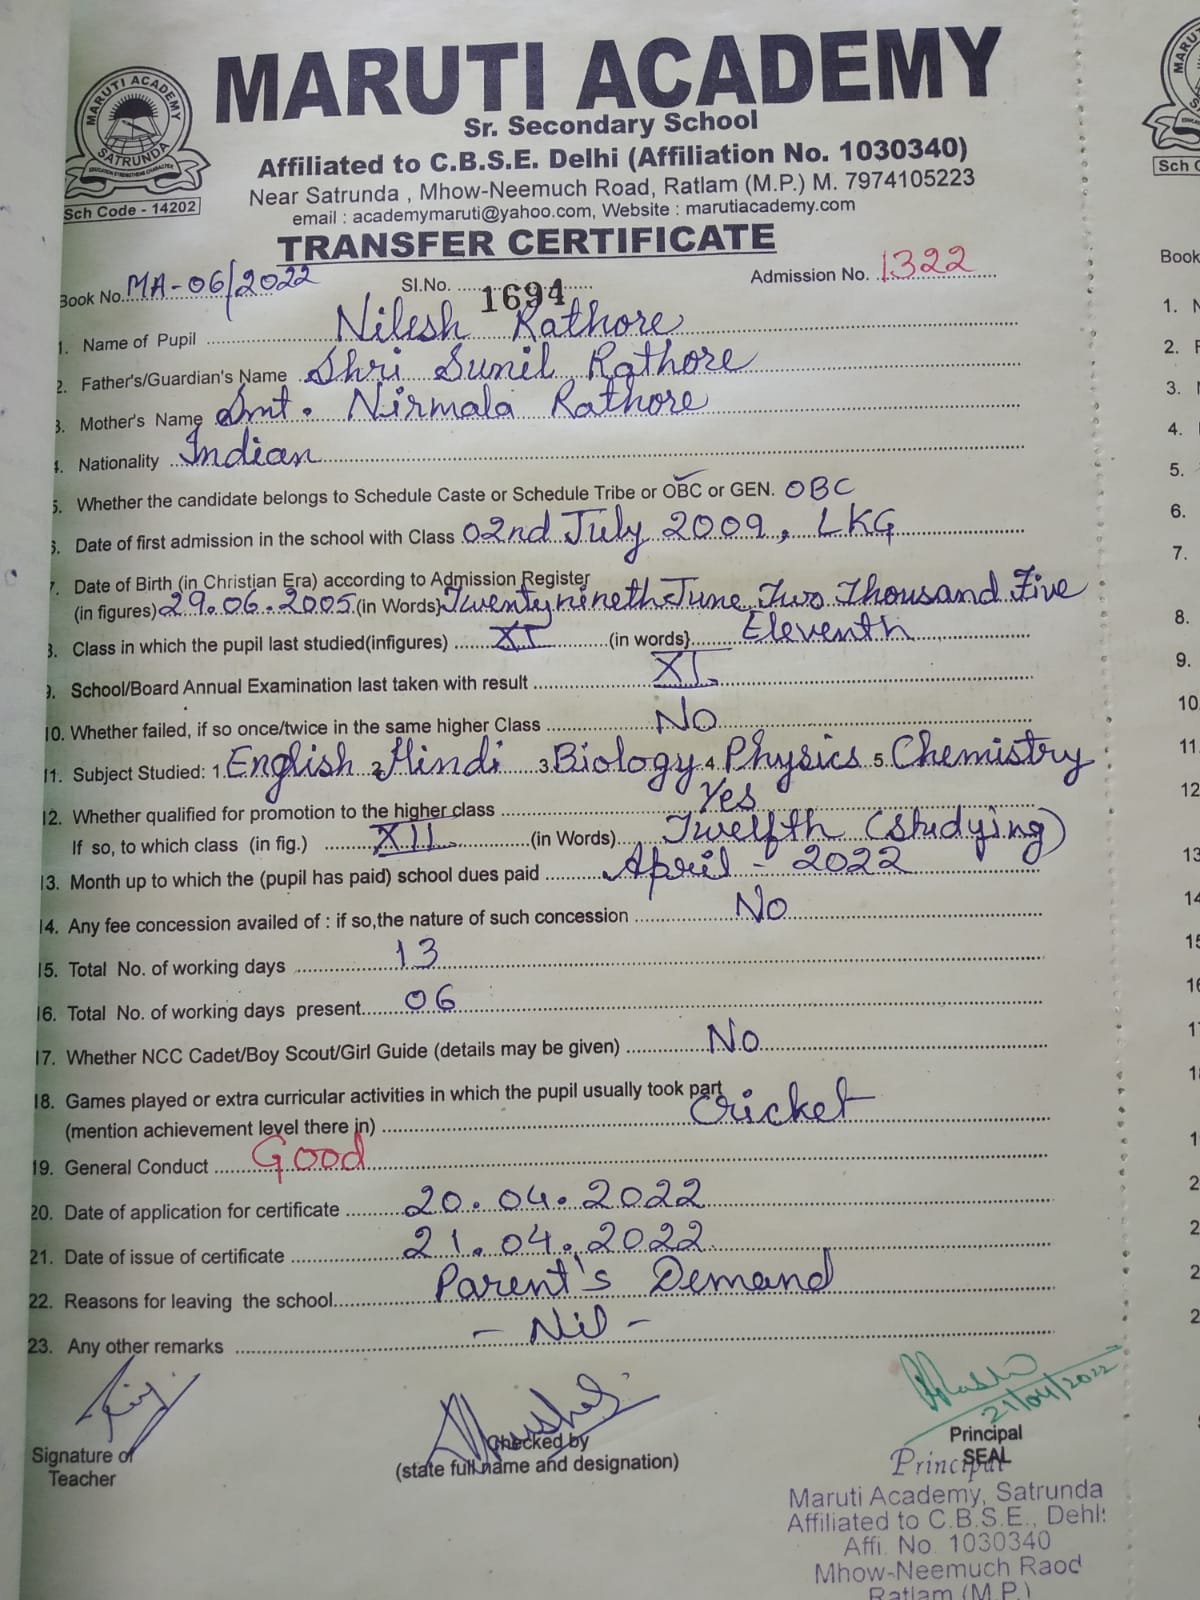 MARUTI ACADEMY
Sr. Secondary School
Affiliated to C.B.S.E. Delhi (Affiliation No. 1030340)
Near Satrunda , Mhow-Neemuch Road, Ratlam (M.P.) M. 7974105223
email : academymaruti@yahoo.com, Website : marutiacademy.com
MARUTI ACADEMY
SATRUNDA
Sch Code - 14202
TRANSFER CERTIFICATE
Book No. MA-06/2022 Sl.No. 1694 Admission No. 1322
1. Name of Pupil Nilesh Rathore
2. Father's/Guardian's Name Shri Sunil Rathore
3. Mother's Name Smt. Nirmala Rathore
4. Nationality Indian
5. Whether the candidate belongs to Schedule Caste or Schedule Tribe or OBC or GEN. OBC
6. Date of first admission in the school with Class 02nd July 2009, LKG
7. Date of Birth (in Christian Era) according to Admission Register
(in figures) 29.06.2005 (in Words) Twenty nineth June Two Thousand Five
8. Class in which the pupil last studied(infigures) XI (in words) Eleventh
9. School/Board Annual Examination last taken with result XI
10. Whether failed, if so once/twice in the same higher Class No
11. Subject Studied: 1. English 2. Hindi 3. Biology 4. Physics 5. Chemistry
12. Whether qualified for promotion to the higher class Yes
If so, to which class (in fig.) XII (in Words) Twelfth (Studying)
13. Month up to which the (pupil has paid) school dues paid April - 2022
14. Any fee concession availed of : if so,the nature of such concession No
15. Total No. of working days 13
16. Total No. of working days present 06
17. Whether NCC Cadet/Boy Scout/Girl Guide (details may be given) No
18. Games played or extra curricular activities in which the pupil usually took part
(mention achievement level there in) Cricket
19. General Conduct Good
20. Date of application for certificate 20.04.2022
21. Date of issue of certificate 21.04.2022
22. Reasons for leaving the school Parent's Demand
23. Any other remarks - Nil -
21/04/2022
Signature of
Teacher
Checked by
(state full name and designation)
Principal
SEAL
Principal
Maruti Academy, Satrunda
Affiliated to C.B.S.E., Dehli
Affi. No. 1030340
Mhow-Neemuch Raod
Ratlam (M.P.)